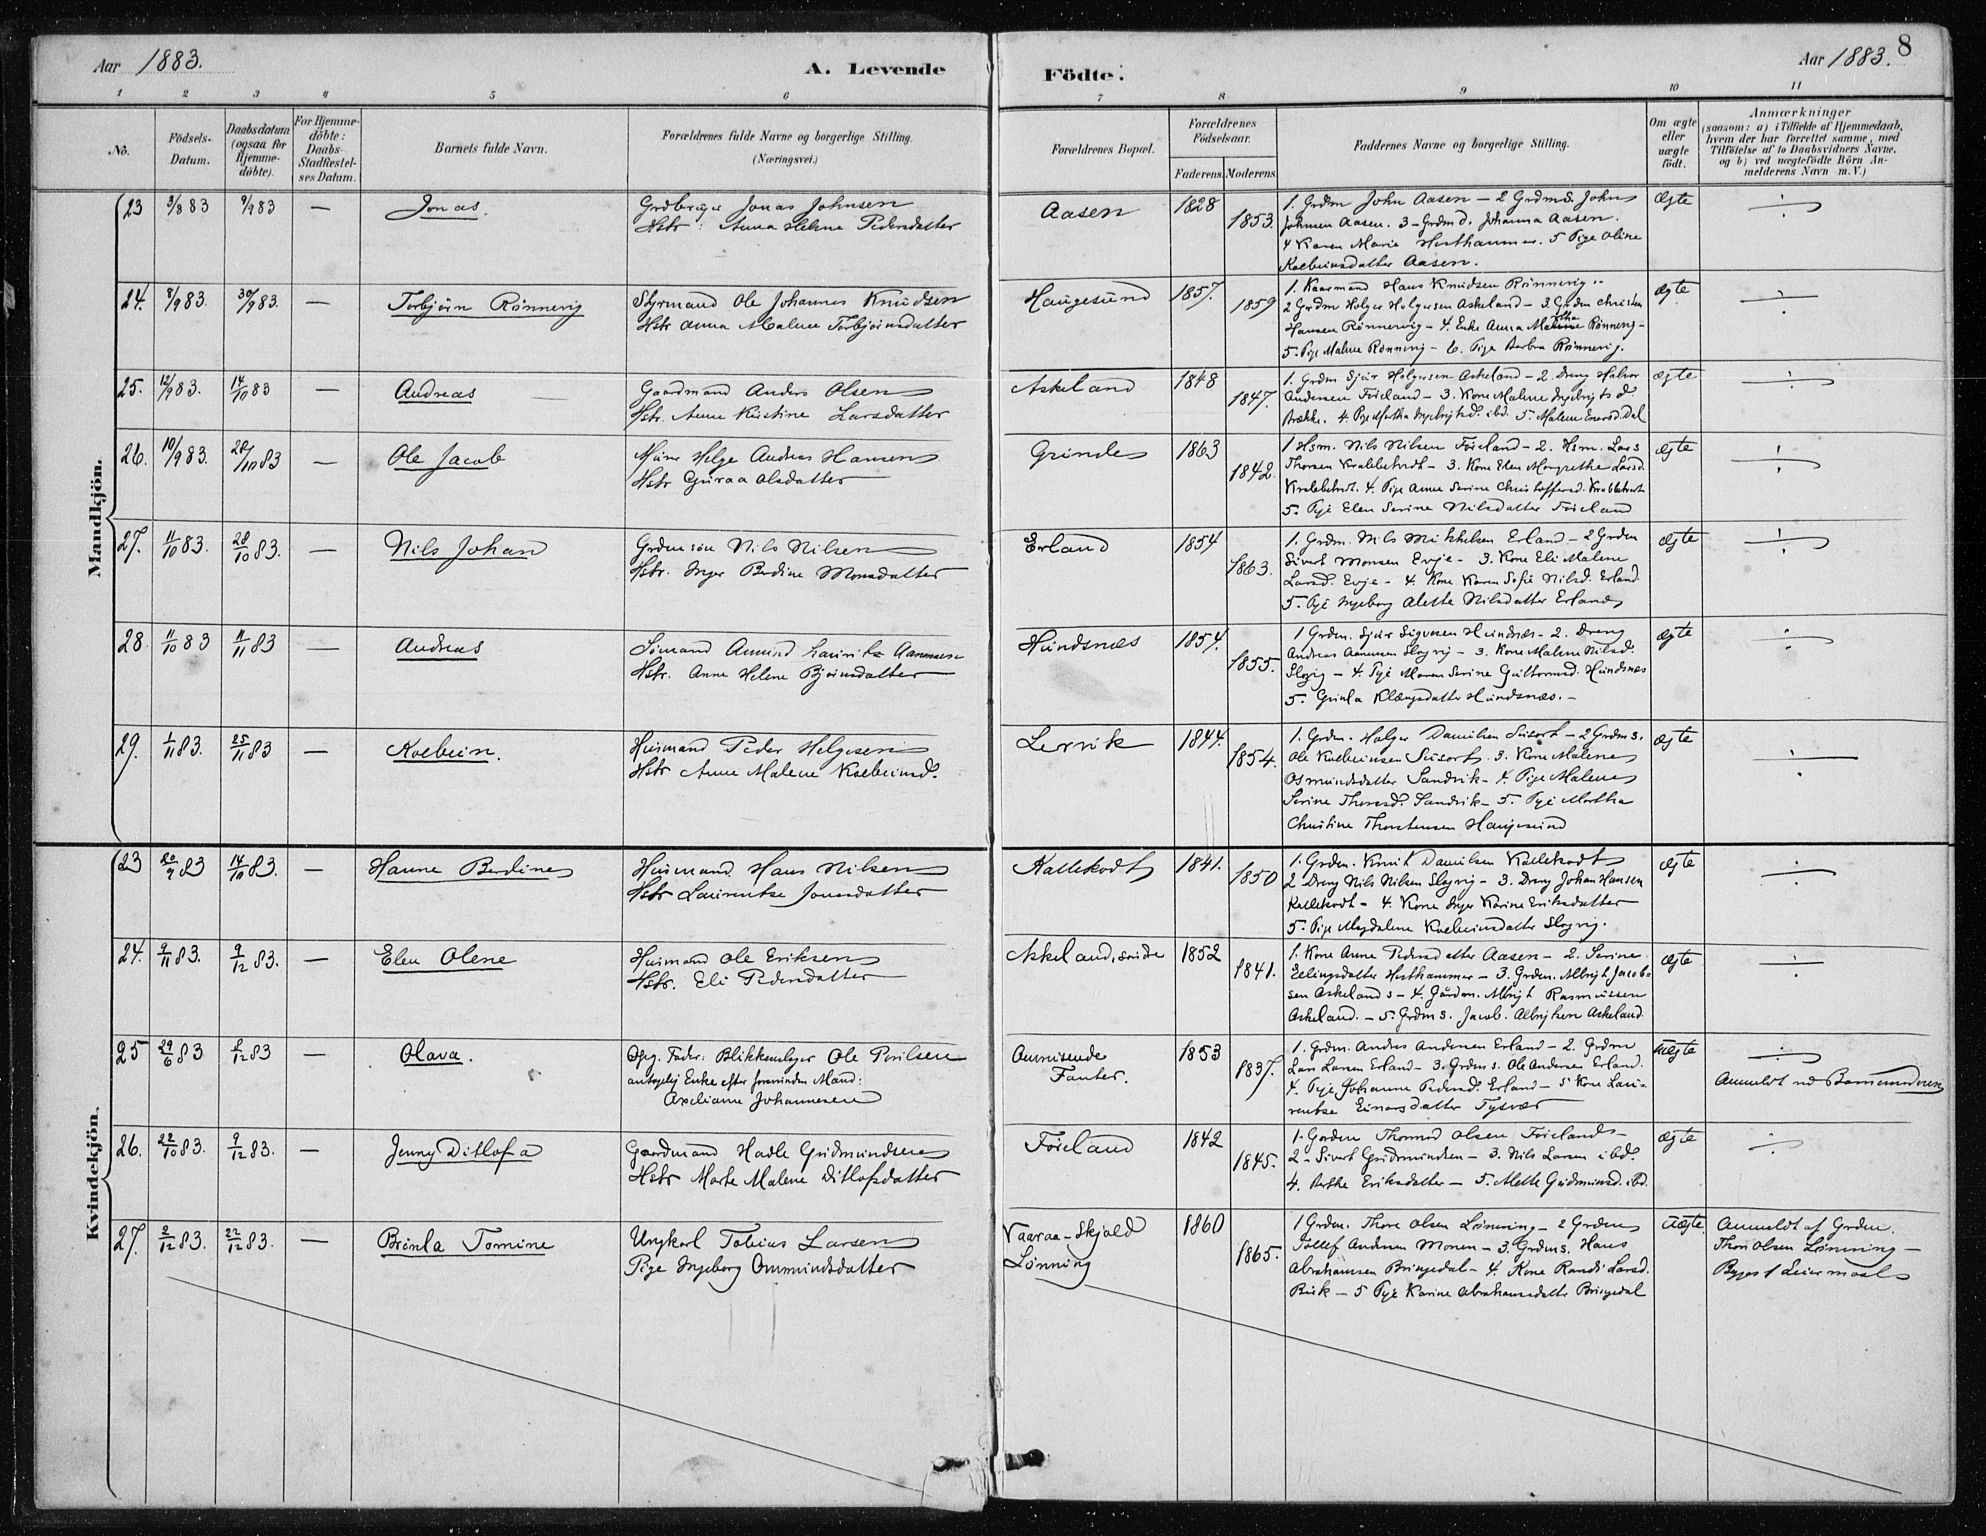 Aar 1883.
A. Levende
Födte.
Aar 1883.
8
1 2 3 4 5 6 7 8 9 10 11
No.
Födsels-
Datum.
Daabsdatum
(ogsaa for
Hjemme-
döbte).
For Hjemme-
döbte:
Daabs-
Stadfæstel-
ses Datum.
Barnets fulde Navn.
Forældrenes fulde Navne og borgerlige Stilling.
(Næringsvei.)
Forældrenes Bopæl.
Forældrenes
Födselsaar.
Faderens. Moderens.
Faddernes Navne og borgerlige Stilling.
Om ægte
eller
uægte
födt.
Anmærkninger
(saasom: a) i Tilfælde af Hjemmedaab,
hvem der har forrettet samme, med
Tilföielse af to Daabsvidners Navne,
og b) ved uægtefödte Börn An-
melderens Navn m. V.)
Mandkjön.
23 3/8 83 9/9 83 — Jonas.
Jonas Johnsen
Hstr: Anna Helene Pedersdatter
Aasen 1828 1853.
1. Grdm John Aasen — 2 Grdms. John
Johnsen Aasen. 3 - Grdmd. Johanna Aasen.
4 Karen Marie Hesthammer. 5 Pige Oline
Kolbeinsdatter Aasen.
Ægte
24. 8/9 83. 30/9 83. — Torbjörn Rönnevig
Styrmand Ole Johannes Knudsen
Hstr Anna Malene Torbjörnsdatter
Haugesund 1857. 1859
1. Kaarmand Hans Knudsen Rönnevig.
2 Grdm Holger Holgersen Askeland — 3. Grdm Christen
Hansen Rönnevig — 4. Enke Anna Rönnevig —
5. Pige Malene Rönnevig — 6. Pige Barbra Rönnevig.
ægte
25. 12/9 83. 14/10 83 — Andreas
Gaardmand Anders Olsen
Hstr. Anne Kistine Larsdatter
Askeland 1848 1847.
1. Grdm Sjur Holgersen Askeland — 2. Dreng Halvor
Andersen Föieland — 3. Kone Malene Ingebrigtsd
Brække. 4. Pige Martha Ingebrigtsd. ibd. 5. Malene Dal
ægte
26. 10/9 83. 28/10 83 — Ole Jacob
Helge Andreas Hansen
Hstr Guraa Olsdatter
Grinde 1863 1842.
1 Hsm. Nils Nilsen Föieland — 2. Hsm. Lars
Thorsen — 3. Kone Elen Margrethe Larsd.
4. Pige Anne Serine Christoffersd.
5. Pige Elen Serine Nilsdatter Föieland
ægte
27. 11/10 83. 28/10 83. — Nils Johan
Grdmsön Nils Nilsen
Hstr. Inger Berdine Monsdatter
Erland 1854 1863.
1. Grdm. Nils Mikkelsen Erland — 2 Grdm
Sivert Monsen Evje — 3. Kone Eli Malene
Larsd. Evje — 4. Kone Karen Sofie Nilsd. Erland.
5. Pige Ingeborg Alette Nilsdatter Erland
ægte
28. 11/10 83 11/11 83 — Andreas
Sömand Amund Lauritz Aamunsen
Hstr. Anne Helene Björnsdatter
Hundsnæs 1854. 1855.
1 Grdm. Sjur Sigvesen Hundsnæs — 2. Dreng
Andreas Aamunsen Slogvig — 3. Kone Malene Nilsd.
Slogvig — 4. Pige Maren Serine Guttormsd. Hundsnæs
5. Gunla Klængsdatter Hundsnæs. —
ægte
29. 1/11 83. 25/11 83 — Kolbein.
Husmand Peder Helgesen
Hstr Anne Malene Kolbeinsd.
Lervik 1844. 1854.
1. Grdm. Holger Danielsen — 2 Grdms.
Ole Kolbeinsen 3. Kone Malene
Osmundsdatter Sandvik — 4. Pige Malene
Serine Thoresd. Sandvik — 5. Pige Martha
Christine Thorstensen Haugesund
ægte
Kvindekjön.
23 20/9 83 14/10 83. — Hanne Berdine
Husmand Hans Nilsen
Hstr Laurentse Jonsdatter
Kallekodt 1841. 1850
1. Grdm. Knut Danielsen Kallekodt
2 Dreng Nils Nilsen Slogvig — 3. Dreng Johan Hansen
Kallekodt — 4. Kone Inger Karine Eriksdatter
5. Pige Magdalene Kolbeinsdatter Slogvig.
ægte
24. 2/11 83. 9/12 83. — Elen Olene
Husmand Ole Eriksen
Hstr. Eli Pedersdatter
Askeland, 1852 1841.
1. Kone Anne Pedersdatter Aasen — 2. Serine
Ellingsdatter Hesthammer — 3. Grdm. Albrigt Jacob-
sen Askeland — 4. Gårdm. Albrigt Rasmussen
Askeland. — 5. Grdms. Jacob. Albrigtsen Askeland.
ægte
25 29/6 83 2/12 83 — Olava.
Opg. Fader: Blikkenslager Ole Poulsen
antagelig Enke efter forsvunden Mand:
Axeliane Johannesen
Omreisende
Fanter. 1853 1837.
1. Grdm. Anders Andersen Erland — 2. Grdm
Lars Larsen Erland — 3. Grdms. Ole Andersen Erland.
4. Pige Johanne Pedersd. Erland — 5 Kone Lau-
rentse Einarsdatter Tysvær
uægte
Anmeldt ved
26. 22/10 83. 9/12 83. — Jenny Ditlofa
Gaardmand Hadle Gudmundsen
Hstr Marte Malene Ditlofsdatter
Föieland 1842 1845.
1. Gardm Thormod Olsen Föieland —
2 - Sivert Gudmundsen — 3. Nils Larsen ibd.
4. Berthe Eriksdatter — 5. Mette Gudmundsd. ibd.
ægte
27. 2/12 83. 22/12 83. — Brinla Tomine
Ungkarl Tobias Larsen
Pige Ingeborg Ommundsdatter
Vaaraa - Skjold
Lönning 1860 1865.
1 Grdm. Thore Olsen Lönning — 2 Grdm
Tollef Andersen Monen — 3. Grdms. Hans
Abrahamsen Bringedal — 4. Kone Randi Larsd.
— 5 Pige Karine Abrahamsdatter Bringedal
uægte
Anmeldt af Grdm.
Thore Olsen Lönning —
Begges 1 Leiermaal